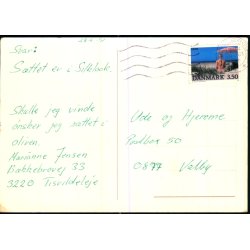 Svar:
Sættet er i Silkebok.
Skulle jeg vinde
ønsker jeg sættet i
oliven.
Marianne Jensen
Bakkebrovej 33
3220 Tisvildeleje
DANMARK 3.50
Ude og Hjemme
Postbox 50
0877 Valby